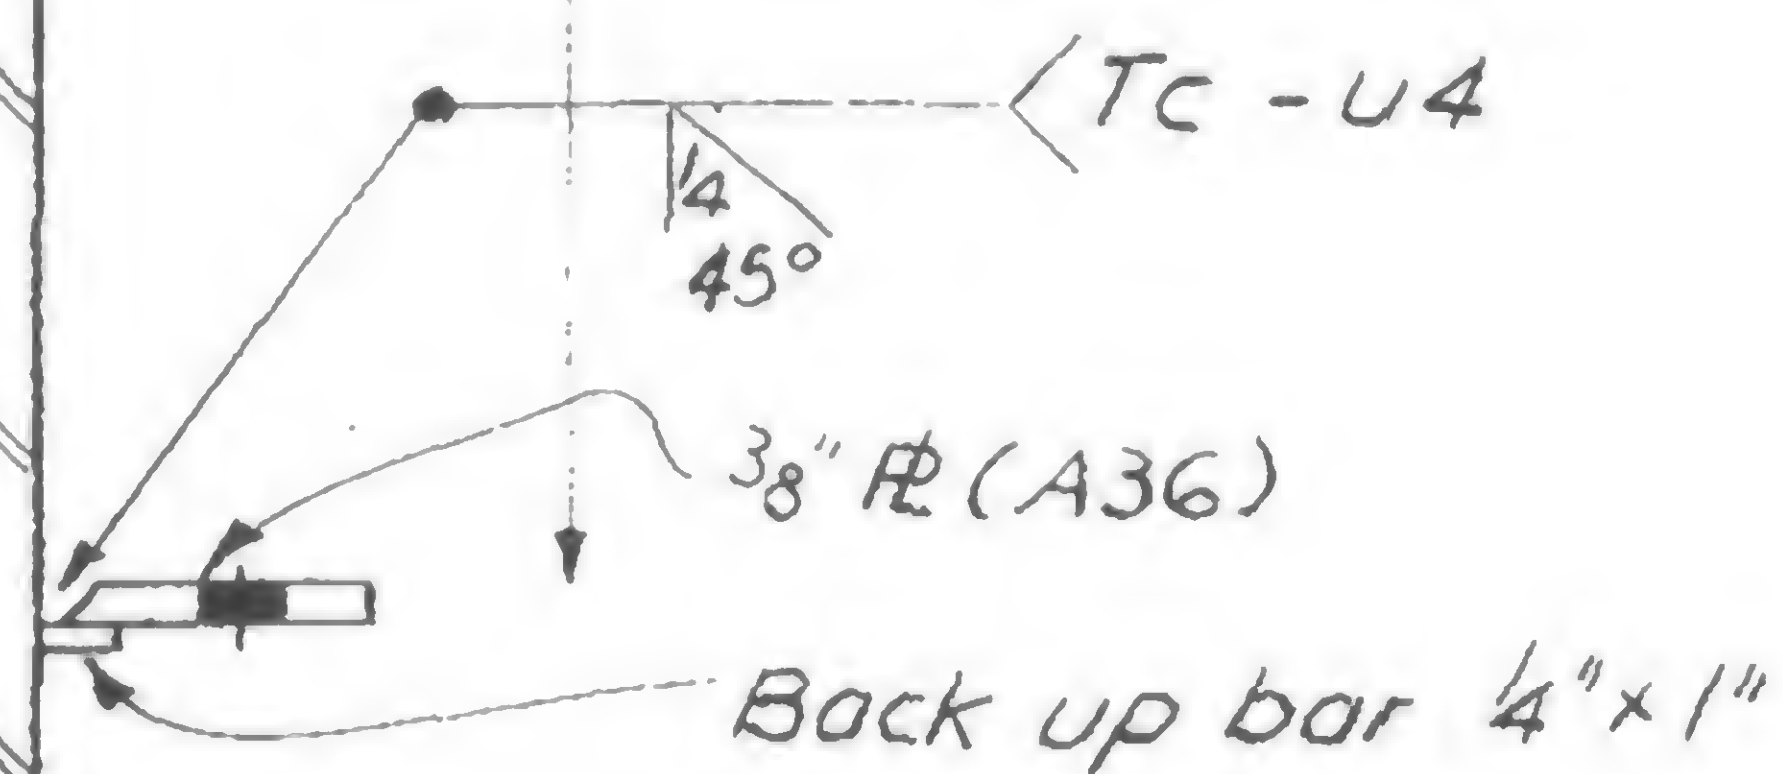 Tc - U4
1/4
45°
3/8" PL (A36)
Back up bar 1/4" x 1"